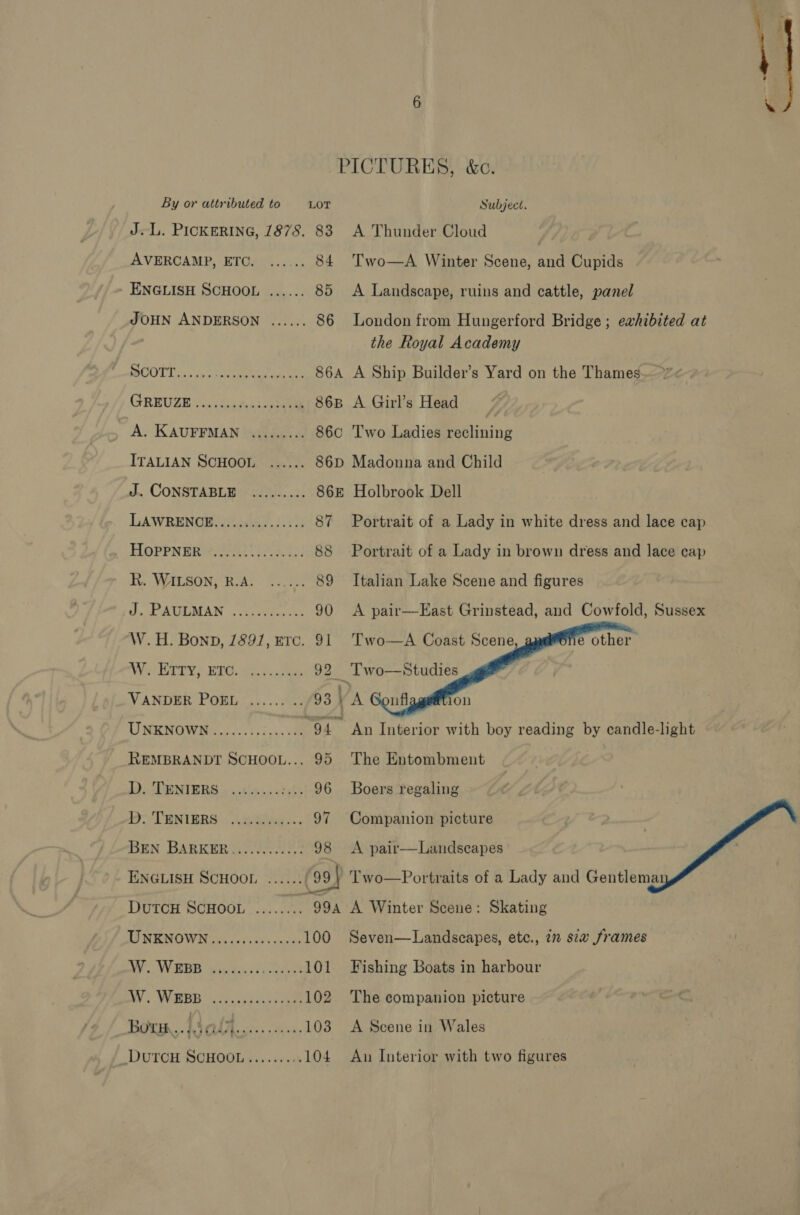 6
PICTURES, &c.
By or attributed to LOT Subject.
J. L. PICKERING, 1878. 83 A Thunder Cloud
AVERCAMP, ETC. ...... 84 Two—A Winter Scene, and Cupids
ENGLISH SCHOOL ...... 85 A Landscape, ruins and cattle, panel
JOHN ANDERSON ...... 86 London from Hungerford Bridge; exhibited at
the Royal Academy
SCOTT..................... 86A A Ship Builder's Yard on the Thames
GREUZE .................. 86B A Girl's Head
A. KAUFFMAN ......... 86C Two Ladies reclining
ITALIAN SCHOOL ...... 86D Madonna and Child
J. CONSTABLE ......... 86E Holbrook Dell
LAWRENCE............... 87 Portrait of a Lady in white dress and lace cap
HOPPNER ............... 88 Portrait of a Lady in brown dress and lace cap
R. WILSON, R.A. ...... 89 Italian Lake Scene and figures
J. PAULMAN ............ 90 A pair—East Grinstead, and Cowfold, Sussex
W. H. BOND, 1891, ETC. 91 Two—A Coast Scene, and the other
W. ETTY, ETC. ......... 92 Two—Studies
VANDER POEL ........ 93 A Conflagration
UNKNOWN ............... 94 An Interior with boy reading by candle-light
REMBRANDT SCHOOL... 95 The Entombment
D. TENIERS ............ 96 Boers regaling
D. TENIERS ............ 97 Companion picture
BEN BARKER............ 98 A pair—Landscapes
ENGLISH SCHOOL ...... 99 Two—Portraits of a Lady and Gentleman
DUTCH SCHOOL ......... 99A A Winter Scene: Skating
UNKNOWN............... 100 Seven—Landscapes, etc., in six frames
W. WEBB ............... 101 Fishing Boats in harbour
W. WEBB ............... 102 The companion picture
BOTH..................... 103 A Scene in Wales
DUTCH SCHOOL......... 104 An Interior with two figures